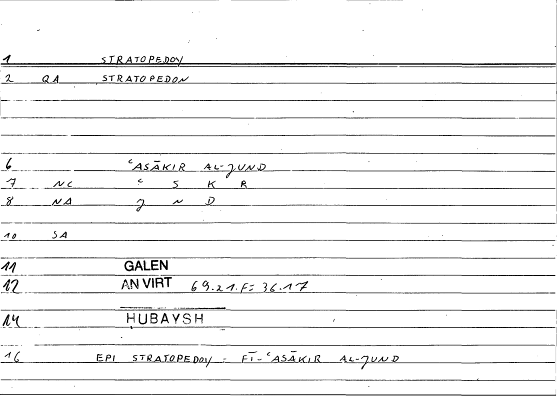 1 STRATOPEDOY
2 QA STRATOPEDON
6 ʿASĀKIR AL-JUND
7 NC ʿ S K R
8 NA J N D
10 SA
11 GALEN
12 AN VIRT 69.21.F= 36.17
14 HUBAYSH
16 EPI STRATOPEDOY - FĪ-ʿASĀKIR AL-JUND